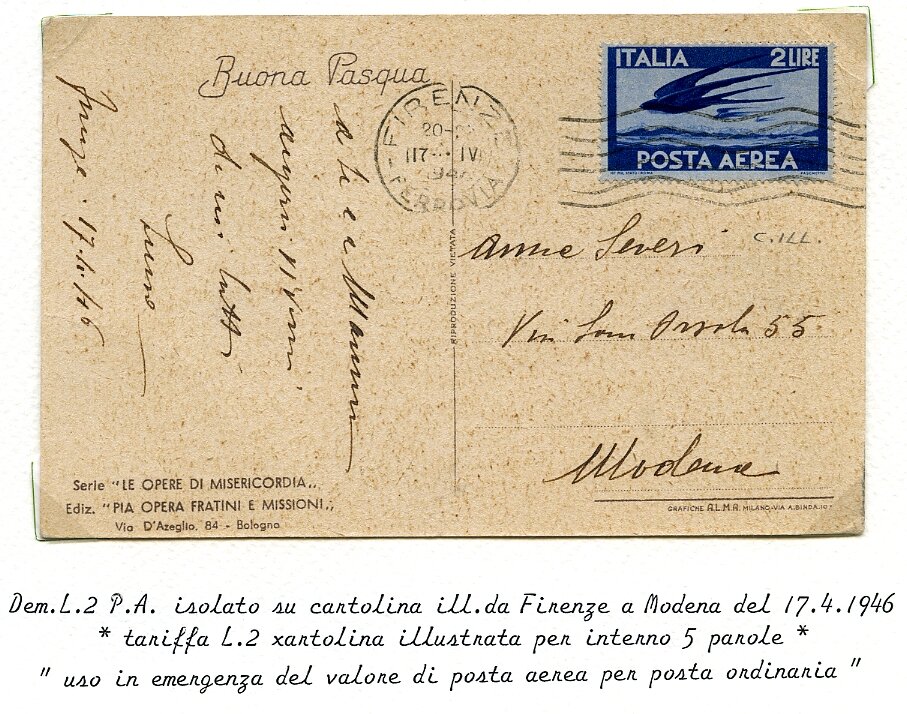 Buona Pasqua
ITALIA 2 LIRE
POSTA AEREA
FIRENZE
20-2
17 IV
FERROVIA
Firenze 17.4.46
a te e Mamma
auguri
di noi tutti
RIPRODUZIONE VIETATA
C. ILL.
Severi
Via San Orsola 55
Modena
Serie "LE OPERE DI MISERICORDIA„
Ediz. "PIA OPERA FRATINI E MISSIONI„
Via D'Azeglio, 84 - Bologna
GRAFICHE A.L.M.A. MILANO-VIA A.BINDA,10
Dem.L.2 P.A. isolato su cartolina ill.da Firenze a Modena del 17.4.1946
* tariffa L.2 xartolina illustrata per interno 5 parole *
" uso in emergenza del valore di posta aerea per posta ordinaria "